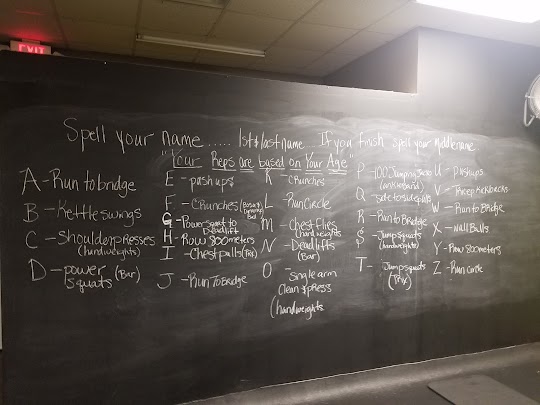 EXIT
Spell your name ..... 1st & last name If you finish spell your middle name
"Your Reps are based on Your Age"
A - Run to bridge
B - Kettle swings
C - Shoulder presses
(handweights)
D - power squats (Bar)
E - pushups
F - Crunches
G - Power squat to
Deadlift
H - Row 300 meters
I - Chest pulls (TRX)
J - Run To Bridge
K - Crunches
L - Run Circle
M - Chest flies
handweights
N - Deadlifts
(Bar)
O - Single arm
Clean & press
(handweights
P - 100 Jumping Jacks
(ankle band)
Q - Side to side
R - Run to Bridge
S - Jump squats
(handweights)
T - Jump squats
(TRX)
U - Pushups
V - Tricep kickbacks
W - Run to Bridge
X - Wall Balls
Y - Row 300 meters
Z - Run Circle